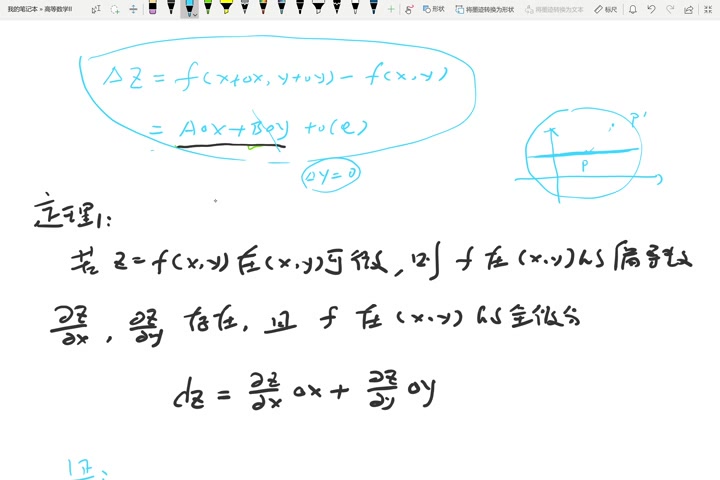 我的笔记本 » 高等数学II
形状
将图迹转换为形状
将图迹转换为文本
标尺
Δz = f(x+Δx, y+Δy) − f(x,y)
= AΔx + BΔy + o(ρ)
Δy=0
P'
P
定理1:
若 z = f(x,y) 在 (x,y) 可微, 则 f 在 (x,y) 的偏导数
∂z/∂x , ∂z/∂y 存在, 且 f 在 (x,y) 的全微分
dz = ∂z/∂x Δx + ∂z/∂y Δy
证: